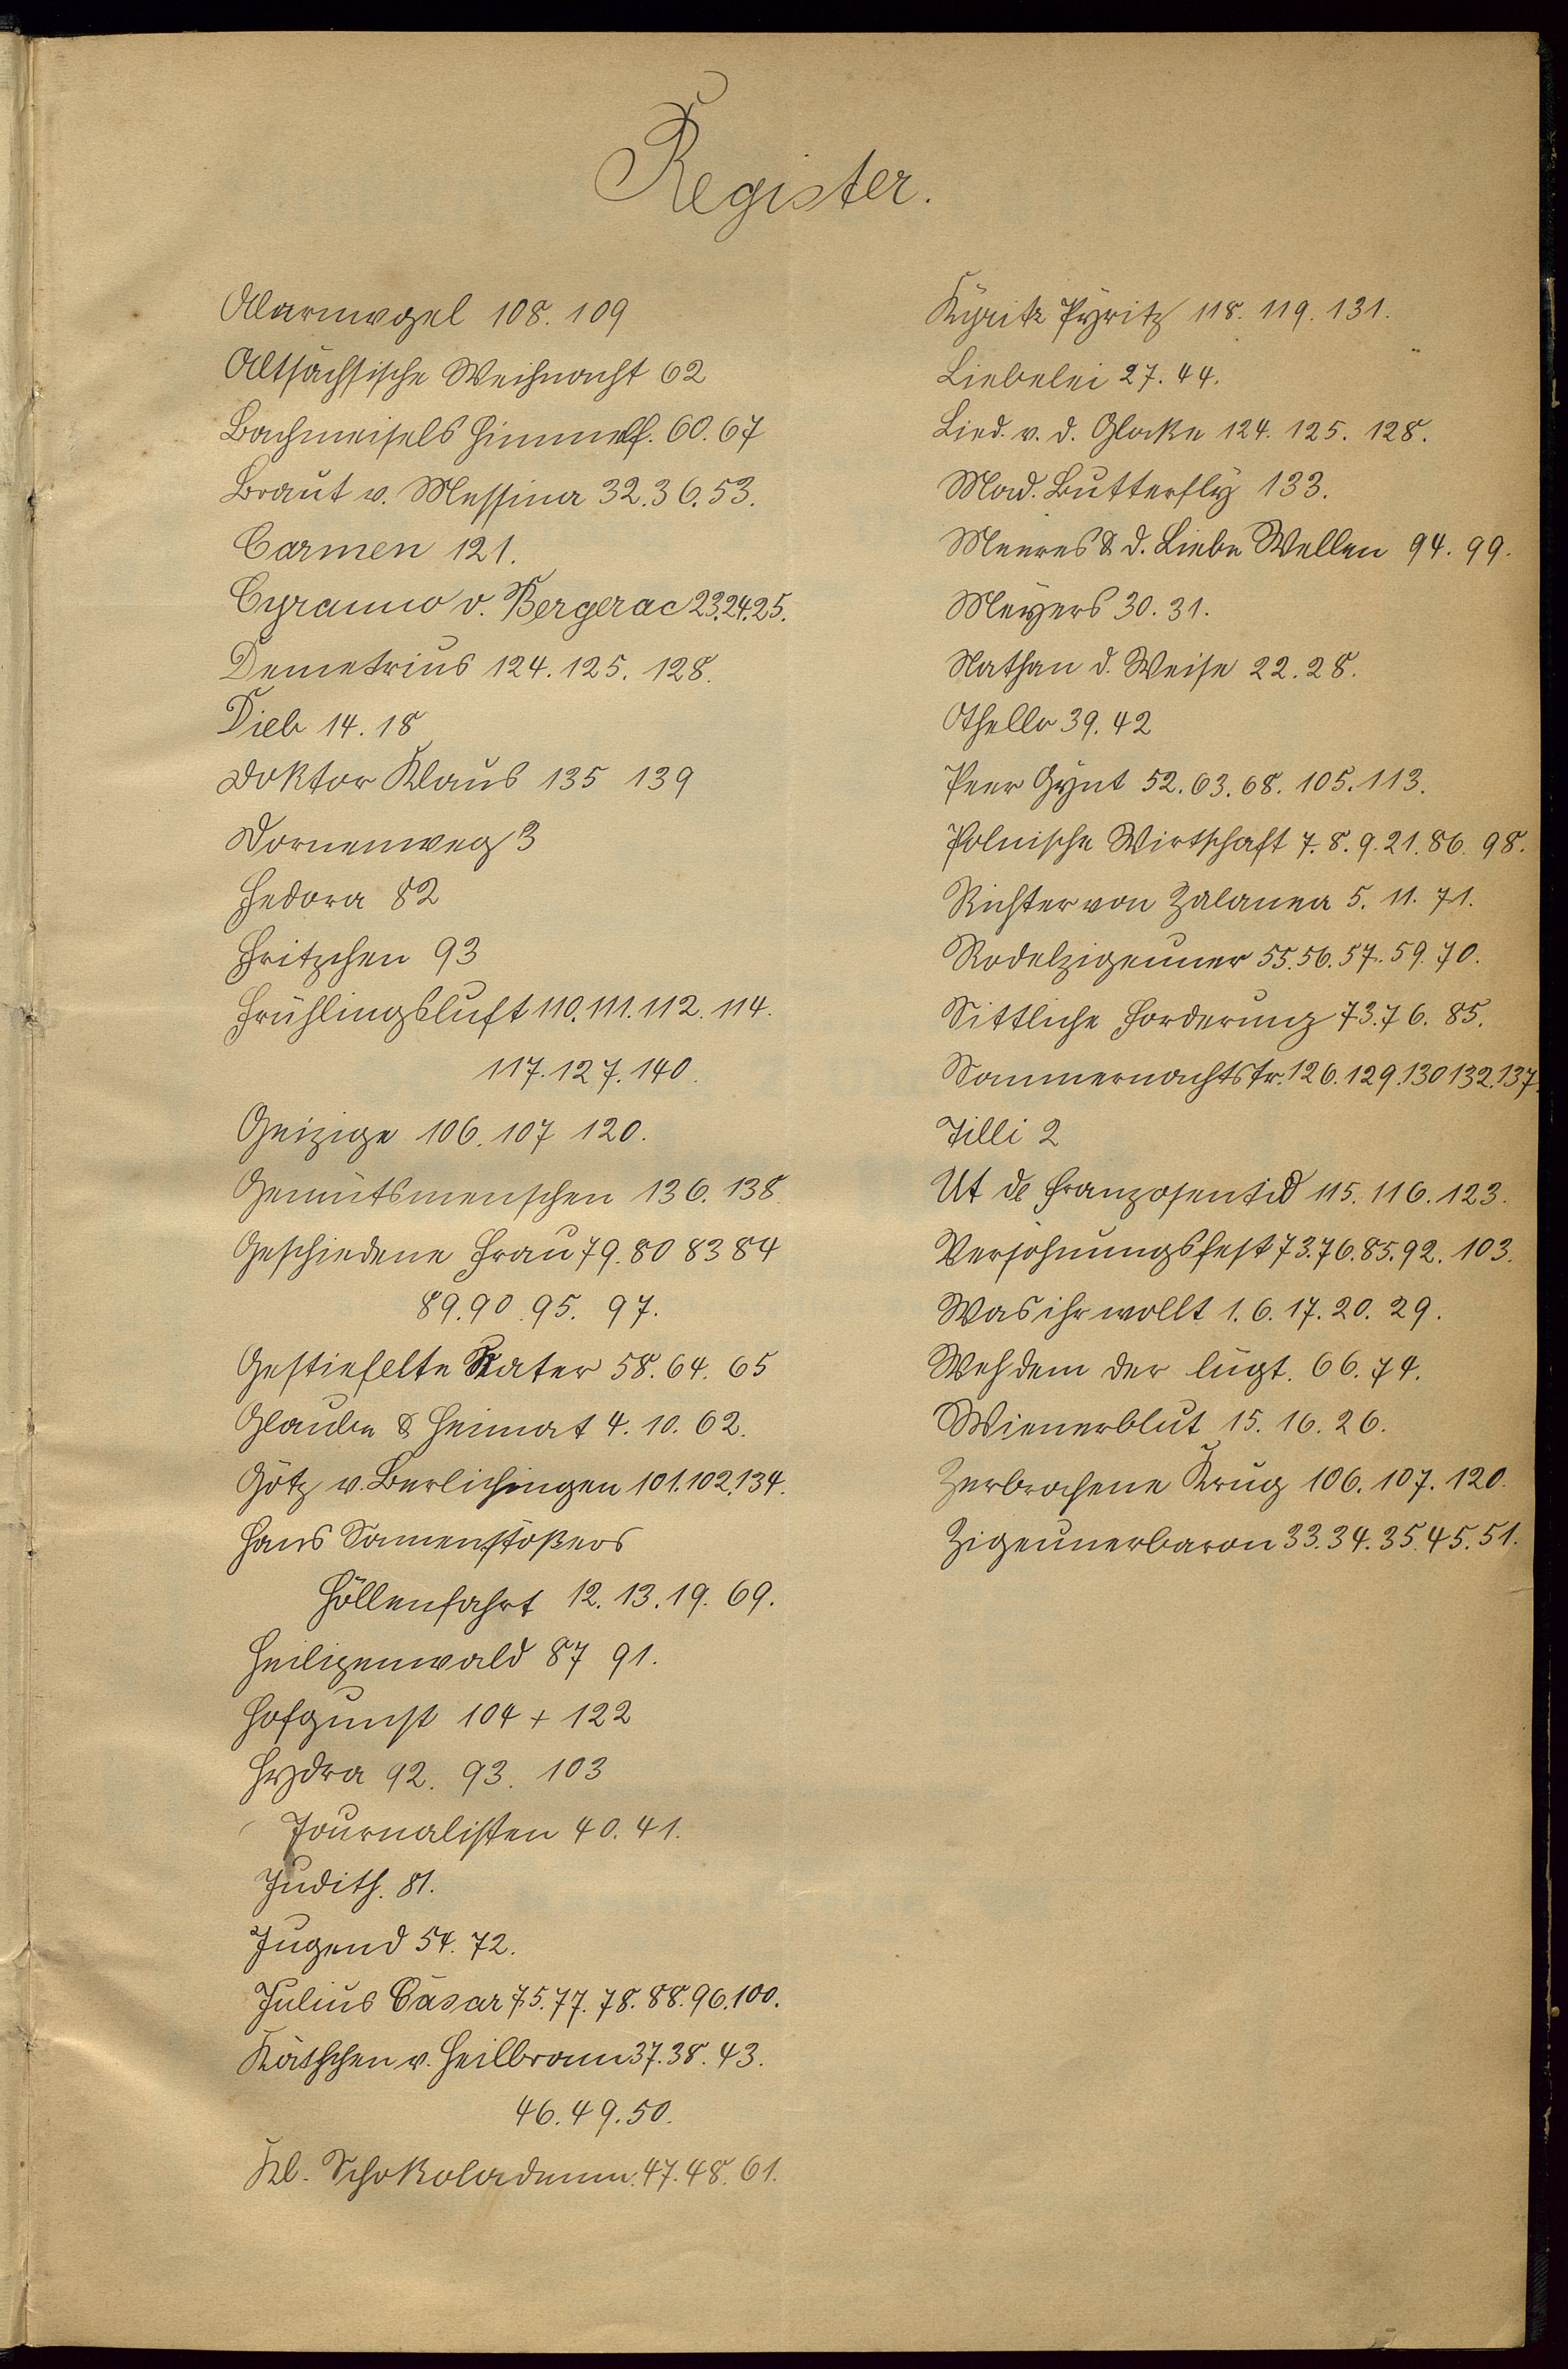 Register.
Alarmvogel 108. 109
Altsächsische Weihnacht 62
Bachmeisels Himmelf. 60. 67
Braut v. Messina 32. 36. 53.
Carmen 121.
Cyranno v. Bergerac 23. 24. 25.
Demetrius 124. 125. 128.
Dieb 14. 18
Doktor Klaus 135 139
Dornenweg 3
Fedora 82
Fritzchen 93
Frühlingsluft 110. 111. 112. 114.
117. 127. 140.
Geizige 106. 107 120.
Gemütsmenschen 136. 138
Geschiedene Frau 79. 80 83 84
89. 90. 95. 97.
Gestiefelte Kater 58. 64. 65
Glaube & Heimat 4. 10. 62.
Götz v. Berlichingen 101. 102. 134.
Hans Sonnenstößers
Höllenfahrt 12. 13. 19. 69.
Heiligenwald 87 91.
Hofgunst 104 + 122
Hydra 92. 93. 103
Journalisten 40. 41.
Judith. 81.
Jugend 54. 72.
Julius Cäsar 75. 77. 78. 88. 96. 100.
Käthchen v. Heilbronn 37. 38. 43.
46. 49. 50.
Kl. Schokoladenm. 47. 48. 61.
Kyritz Pyritz 118. 119. 131.
Liebelei 27. 44.
Lied. v. d. Glocke 124. 125. 128.
Mad. Butterfly 133.
Meeres & d. Liebe Wellen 94. 99.
Meyers 30. 31.
Nathan d. Weise 22. 28.
Othello 39. 42
Peer Gynt 52. 63. 68. 105. 113.
Polnische Wirtschaft 7. 8. 9. 21. 86. 98.
Richter von Zalamea 5. 11. 71.
Rodelzigeuner 55. 56. 57. 59. 70.
Sittliche Forderung 73. 76. 85.
Sommernachtstr. 126. 129. 130 132. 137.
Tilli 2
Ut de Franzosentid 115. 116. 123.
Versöhnungsfest 73. 76. 85. 92. 103.
Was ihr wollt 1. 6. 17. 20. 29.
Weh dem der lügt. 66. 74.
Wienerblut 15. 16. 26.
Zerbrochene Krug 106. 107. 120.
Zigeunerbaron 33. 34. 35. 45. 51.